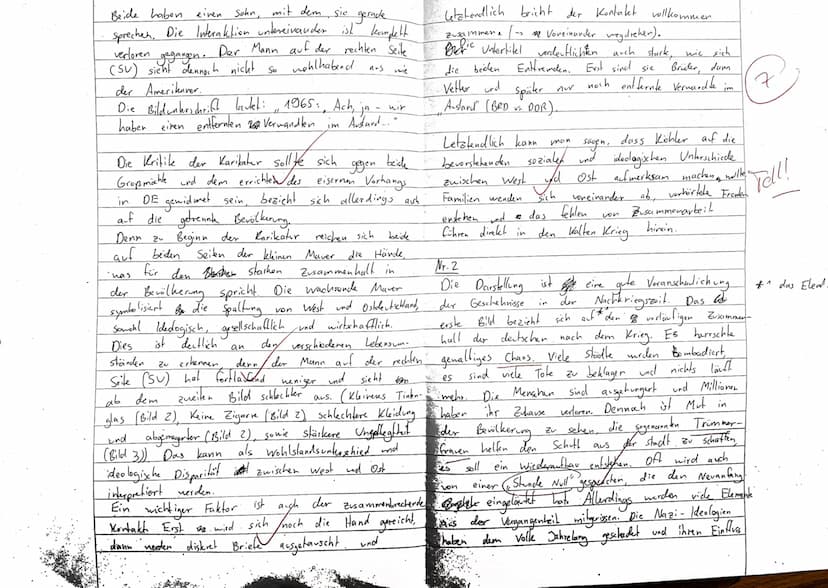 Beide haben einen Sohn, mit dem sie gerade
sprechen. Die Interaktion untereinander ist komplett
verloren gegangen. Der Mann auf der rechten Seite
(SU) sieht dennoch nicht so wohlhabend aus wie
der Amerikaner.
Die Bildunterschrift lautet: „1965: „Ach, ja - wir
haben einen entfernten Verwandten im Ausland..."
Die Kritik der Karikatur sollte sich gegen beide
Großmächte und dem errichten des eisernen Vorhangs
in DE gewidmet sein, bezieht sich allerdings auch
auf die getrennte Bevölkerung.
Denn zu Beginn der Karikatur reichen sich beide
auf beiden Seiten der kleinen Mauer die Hände,
was für den starken Zusammenhalt in
der Bevölkerung spricht. Die wachsende Mauer
symbolisiert die Spaltung von West und Ostdeutschland,
sowohl Ideologisch, gesellschaftlich und wirtschaftlich.
Dies ist deutlich an den verschiedenen Lebensum-
ständen zu erkennen, denn der Mann auf der rechten
Seite (SU) hat fortlaufend weniger und sieht
ab dem zweiten Bild schlechter aus. (Kleineres
glas (Bild 2), Keine Zigarre (Bild 2) schlechtere Kleidung
und abgemagerter (Bild 2), sowie stärkere Ungepflegtheit
(Bild 3)) Das kann als Wohlstandsunterschied und
ideologische Disparität zwischen West und Ost
interpretiert werden.
Ein wichtiger Faktor ist auch der zusammenbrechende
Kontakt. Erst wird sich noch die Hand gereicht,
dann werden diskret Briefe ausgetauscht und
Letztendlich bricht der Kontakt vollkommen
zusammen (-> Voneinander wegdrehen).
Die Untertitel verdeutlichen auch stark, wie sich
die beiden Entfremden. Erst sind sie Brüder, dann
Vetter und später nur noch entfernte Verwandte im
„Ausland (BRD vs DDR).
7
Letztendlich kann man sagen, dass Köhler auf die
bevorstehenden sozialen und ideologischen Unterschiede
zwischen West und Ost aufmerksam machen wollte.
Toll!
Familien wenden sich voneinander ab, verhärtete Fronten
entstehen und das fehlen von Zusammenarbeit
führen direkt in den Kalten Krieg hinein.
Nr. 2
Die Darstellung ist eine gute Veranschaulichung
*1 das Elend
der Geschehnisse in der Nachkriegszeit. Das
erste Bild bezieht sich auf *1 den vorläufigen Zusammen-
halt der deutschen nach dem Krieg. Es herrschte
gewaltiges Chaos. Viele Städte wurden Bombadiert,
es sind viele Tote zu beklagen und nichts läuft
mehr. Die Menschen sind ausgehungert und Millionen
haben ihr Zuhause verloren. Dennoch ist Mut in
der Bevölkerung zu sehen, die sogenannten Trümmer-
frauen helfen den Schutt aus der Stadt zu schaffen,
es soll ein Wiederaufbau entstehen. Oft wird auch
von einer („Stunde Null" gesprochen, die den Neuanfang
eingeläutet hat. Allerdings werden viele Elemente
aus der Vergangenheit mitgerissen. Die Nazi-Ideologien
haben dem Volk Jahrelang geschadet und ihren Einfluss